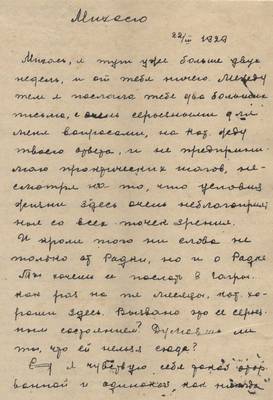 Михасю
22/II 1929
Михась, я тут уже больше двух
недель, и от тебя ничего. Между
тем я послала тебе два больших
письма, с очень серьезными для
меня вопросами, на кот. жду
твоего ответа, и не предприни-
маю практических шагов, не-
смотря на то, что условия
жизни здесь очень неблагоприят
ные со всех точек зрения.
И кроме того ни слова не
только от Радки, но и о Радке
Ты хочешь ее послать в Гагры.
как раз на те месяцы, кот. хо-
роши здесь. Вызвано это ее серьез-
ным состоянием? Думаешь ли
ты, что ей нельзя сюда?
я чувствую себя такой отор-
ванной и одинокой, как никогда